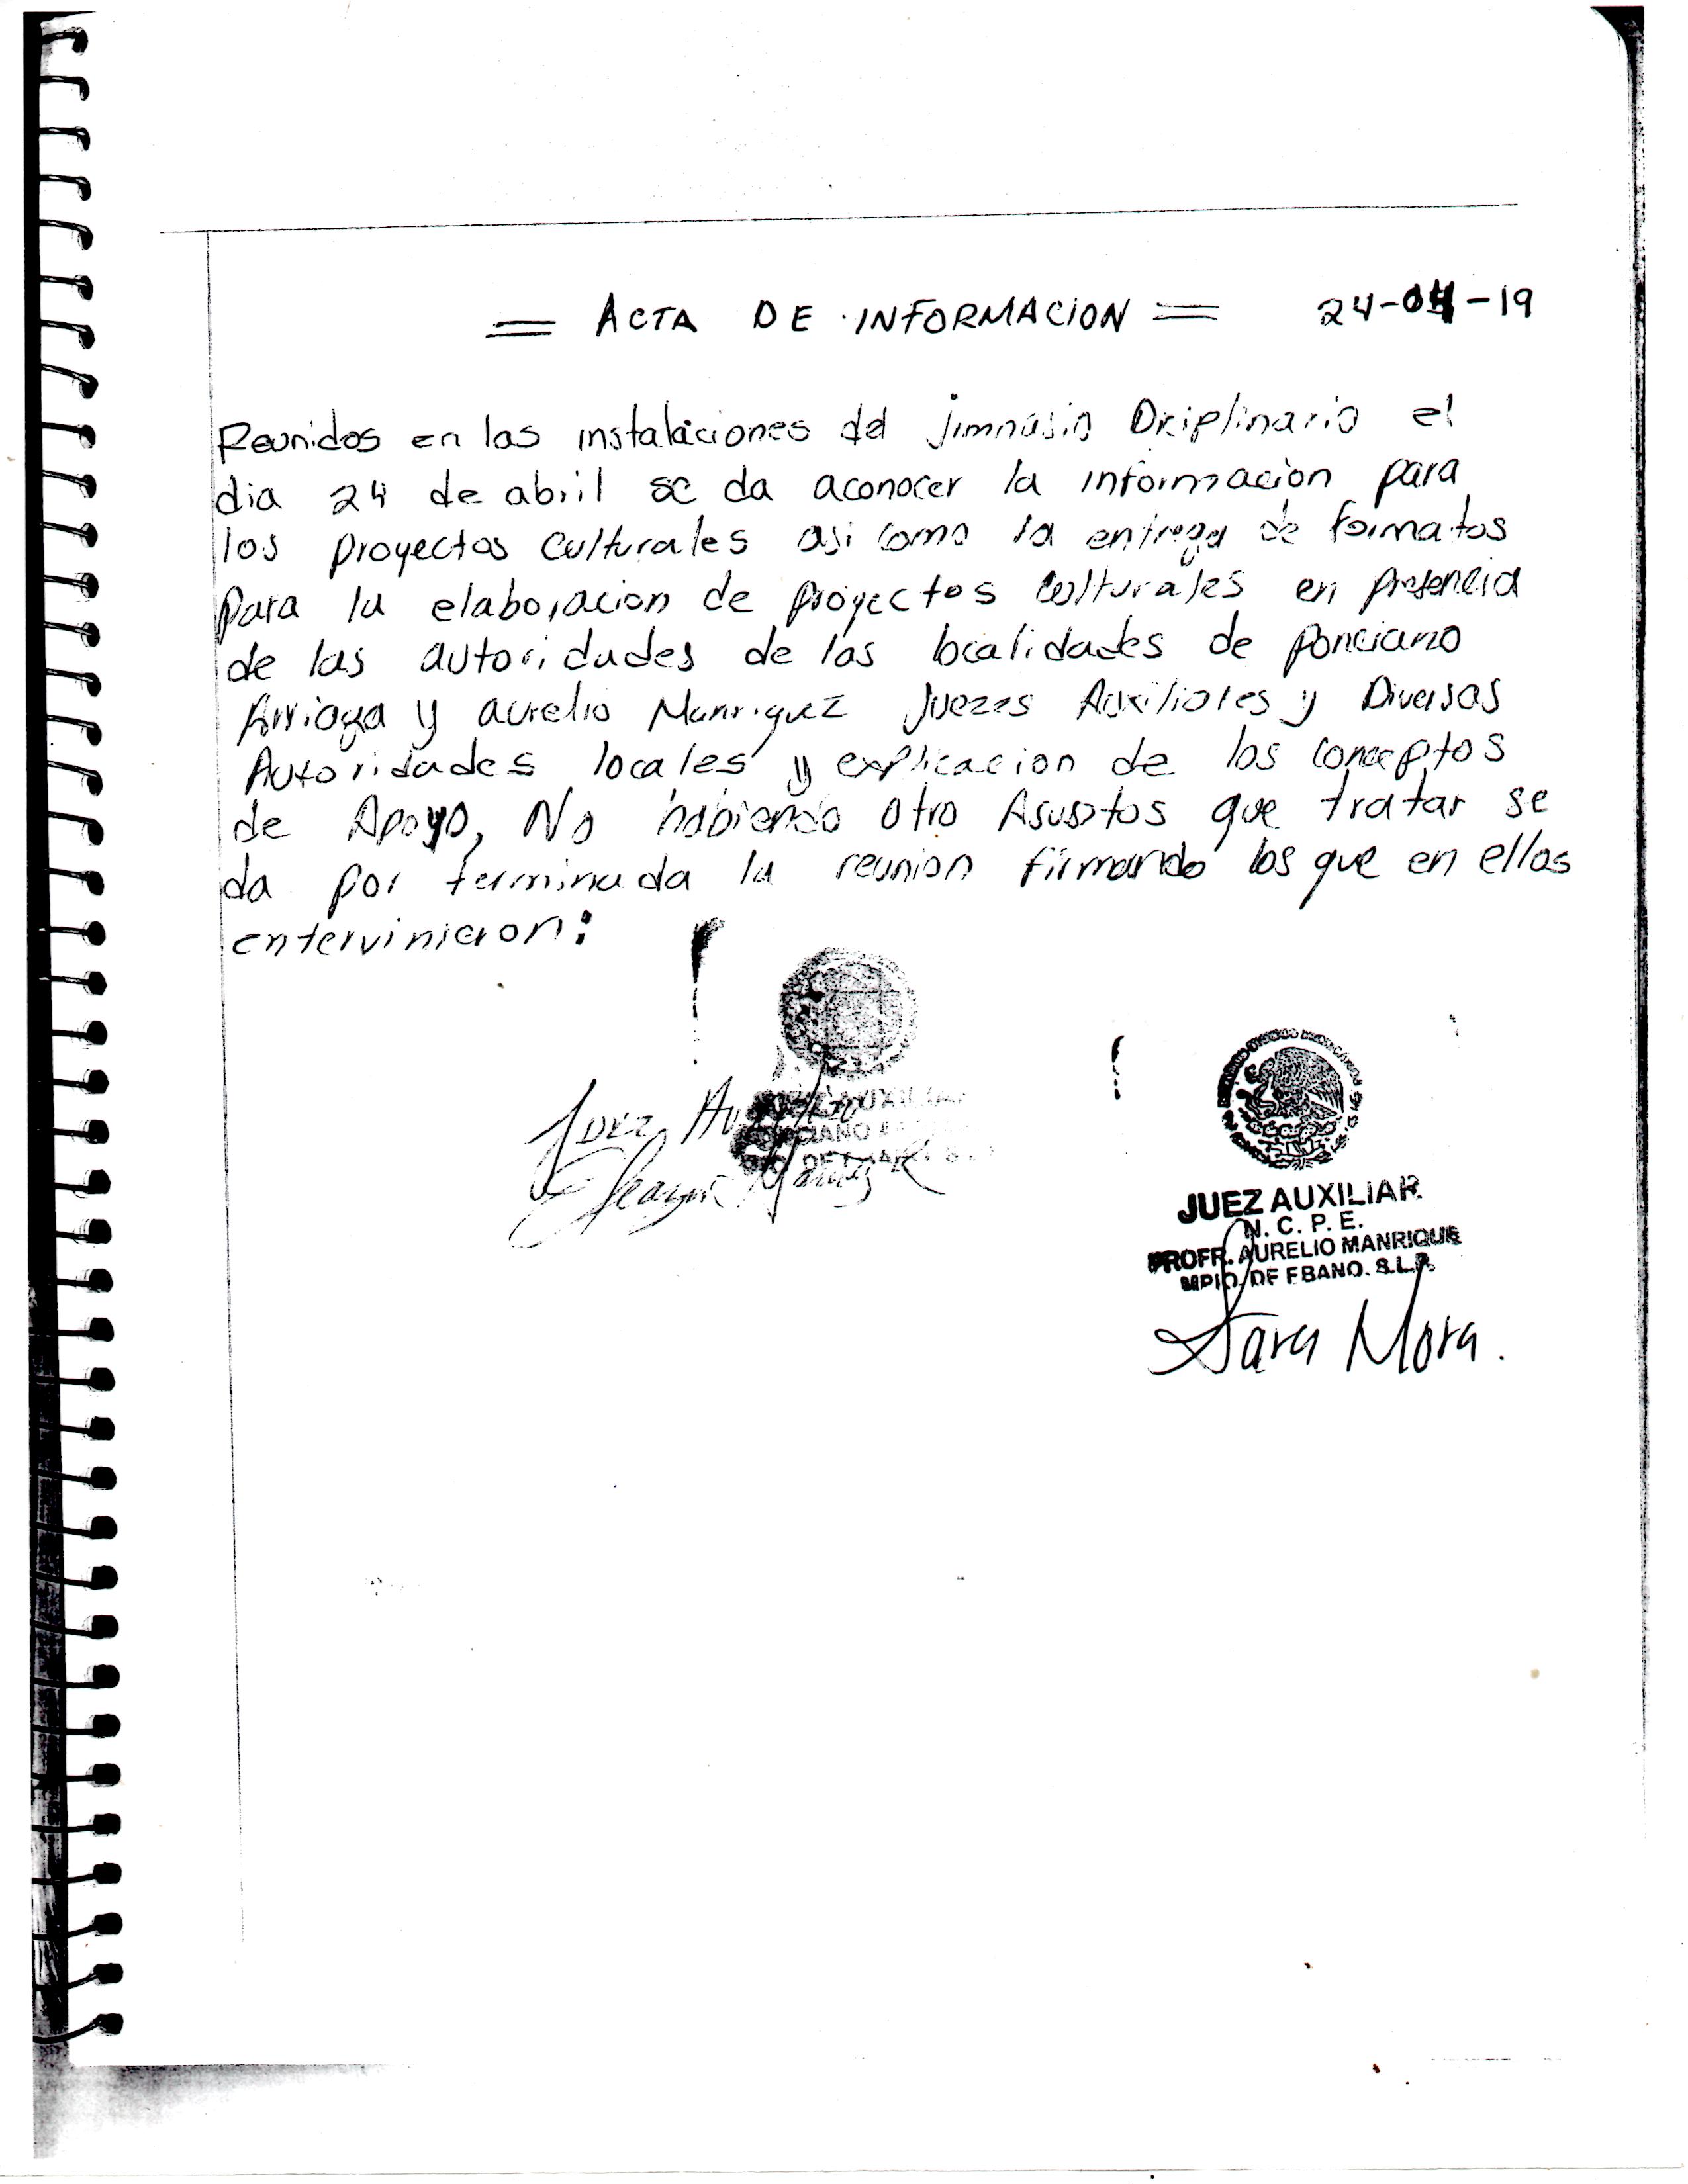 = ACTA DE INFORMACION = 24-04-19
Reunidos en las instalaciones del jimnasio Diciplinario el
dia 24 de abril se da aconocer la informacion para
los proyectos culturales asi como la entrega de formatos
para la elaboracion de proyectos culturales en presencia
de las autoridades de las localidades de ponciano
Arriaga y aurelio Manriquez Juezes Auxiliares y Diversas
Autoridades locales y explicacion de los conceptos
de Apoyo, No habiendo otro Asustos que tratar se
da por terminada la reunion firmando los que en ellas
entervinieron:
Juez
JUEZ AUXILIAR
N. C. P. E.
PROFR. AURELIO MANRIQUE
MPIO. DE EBANO. S.L.P.
Sara Mora.